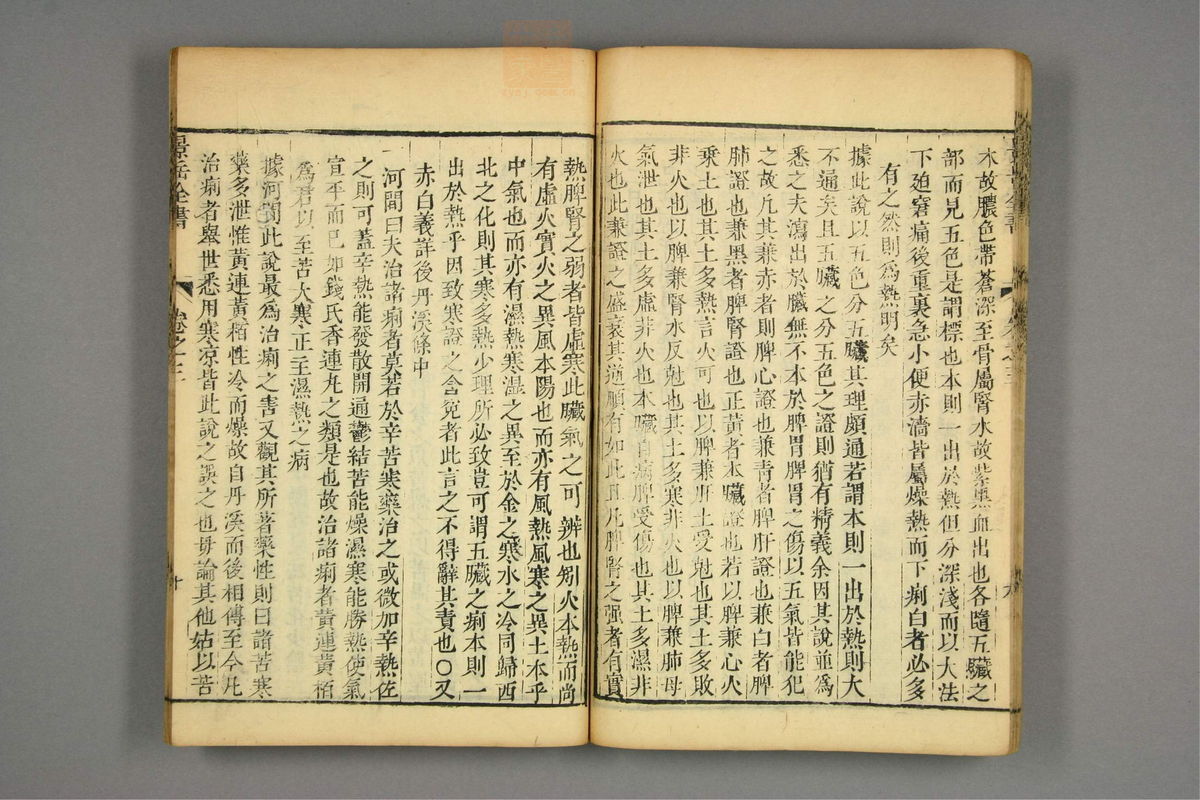 木故膿色帶蒼深至骨屬腎水故紫黑血出也各隨五臟之
部而見五色是謂標也本則一出於熱但分深淺而以大法
下廹窘痛後重裏急小便赤濇皆屬燥熱而下痢白者必多
有之然則為熱明矣
據此說以五色分五臟其理頗通若謂本則一出於熱則大
不通矣且五臟之分五色之證則猶有精義余因其說並為
悉之夫瀉出於臟無不本於脾胃脾胃之傷以五氣皆能犯
之故凡其兼赤者則脾心證也兼青者脾肝證也兼白者脾
肺證也兼黑者脾腎證也正黃者本臟證也若以脾兼心火
乘土也其土多熱言火可也以脾兼肝土受尅也其土多敗
非火也以脾兼腎水反尅也其土多寒非火也以脾兼肺母
氣泄也其土多虛非火也本臟自病脾受傷也其土多濕非
火也此兼證之盛衰其逆順有如此且凡脾腎之强者有實
熱脾腎之弱者皆虛寒此臟氣之可辨也矧火本熱而尚
有虛火實火之異風本陽也而亦有風熱風寒之異土本乎
中氣也而亦有濕熱寒濕之異至於金之寒水之冷同歸西
北之化則其寒多熱少理所必致豈可謂五臟之痢本則一
出於熱乎因致寒證之含寃者此言之不得辭其責也○又
赤白義詳後丹溪條中
河間曰夫治諸痢者莫若於辛苦寒藥治之或微加辛熱佐
之則可蓋辛熱能發散開通鬱結苦能燥濕寒能勝熱使氣
宣平而已如錢氏香連丸之類是也故治諸痢者黃連黃栢
為君以至苦大寒正主濕熱之病
據河間此說最為治痢之害又觀其所著藥性則曰諸苦寒
藥多泄惟黃連黃栢性冷而燥故自丹溪而後相傳至今凡
治痢者舉世悉用寒凉皆此說之誤之也毋論其他姑以苦
景岳全書
卷之二
十